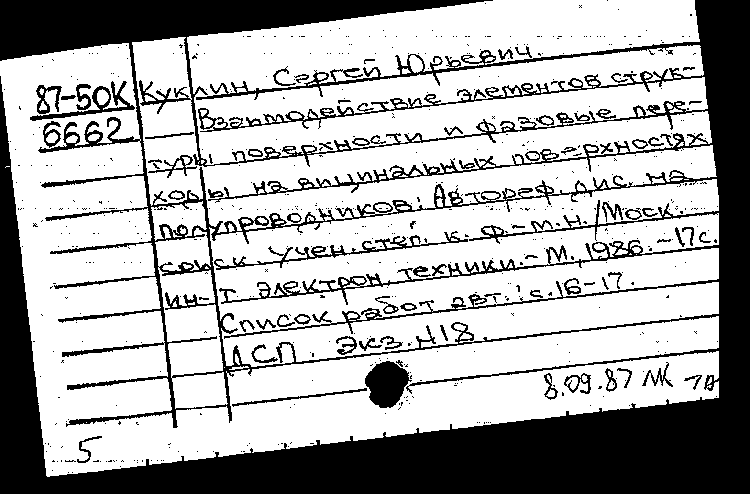 87-50К Куклин, Сергей Юрьевич.
6662 Взаимодействие элементов струк-
туры поверхности и фазовые пере-
ходы на вицинальных поверхностях
полупроводников: Автореф. дис. на
соиск. учен. степ. к. ф.-м.н. /Моск.
ин-т электрон. техники.- М., 1986.-17с.
Список работ авт.: с.16-17.
ДСП. Экз. №18.
8.09.87
5